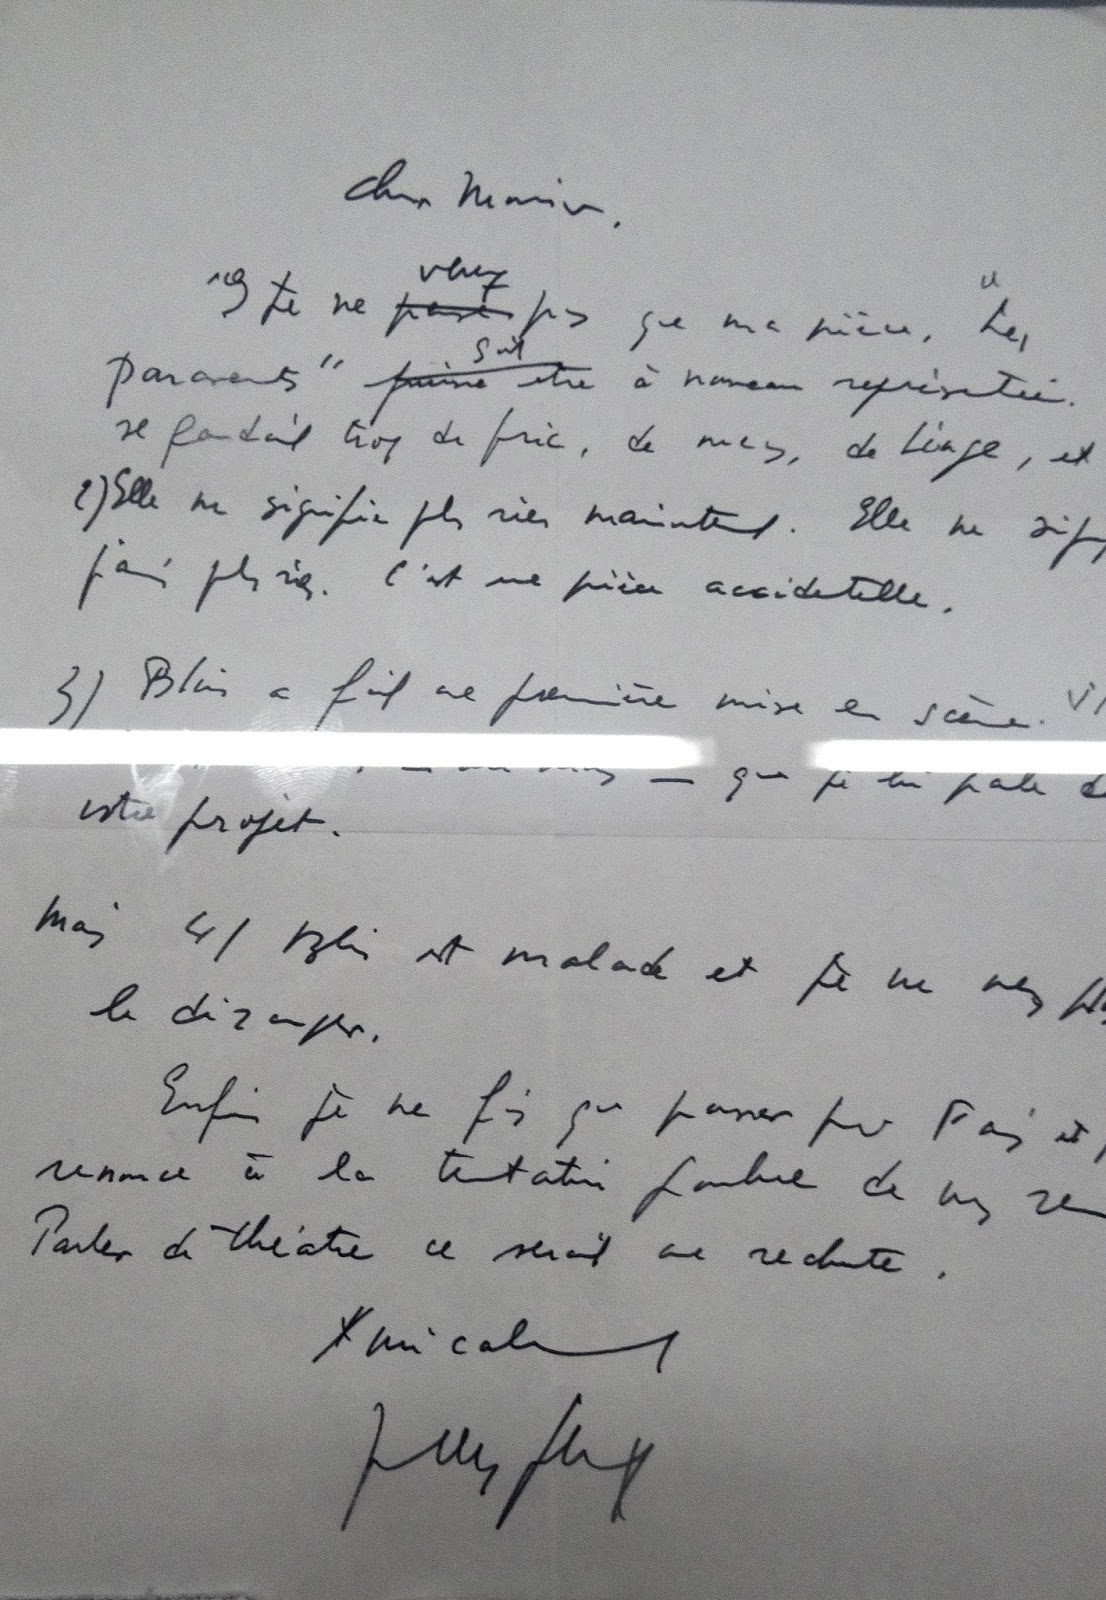 Cher Monsieur,
1°) Je ne ~~pense~~ veux pas que ma pièce, "Les
Paravents" ~~puisse être~~ soit à nouveau représentée.
se faudrait trop de fric, de mecs, de linge, et
2) Elle ne signifie plus rien maintenant. Elle ne
plus rien. C'est une pièce accidentelle.
3) Blin a fait une première mise en scène.
que je lui parle de
votre projet.
Mais 4) Blin est malade et je ne veux pas
le déranger.
Enfin je ne fais que passer par Paris et
renonce à la tentation de vous
Parler de théâtre ce serait une rechute.
Amicalement
Jean Genet